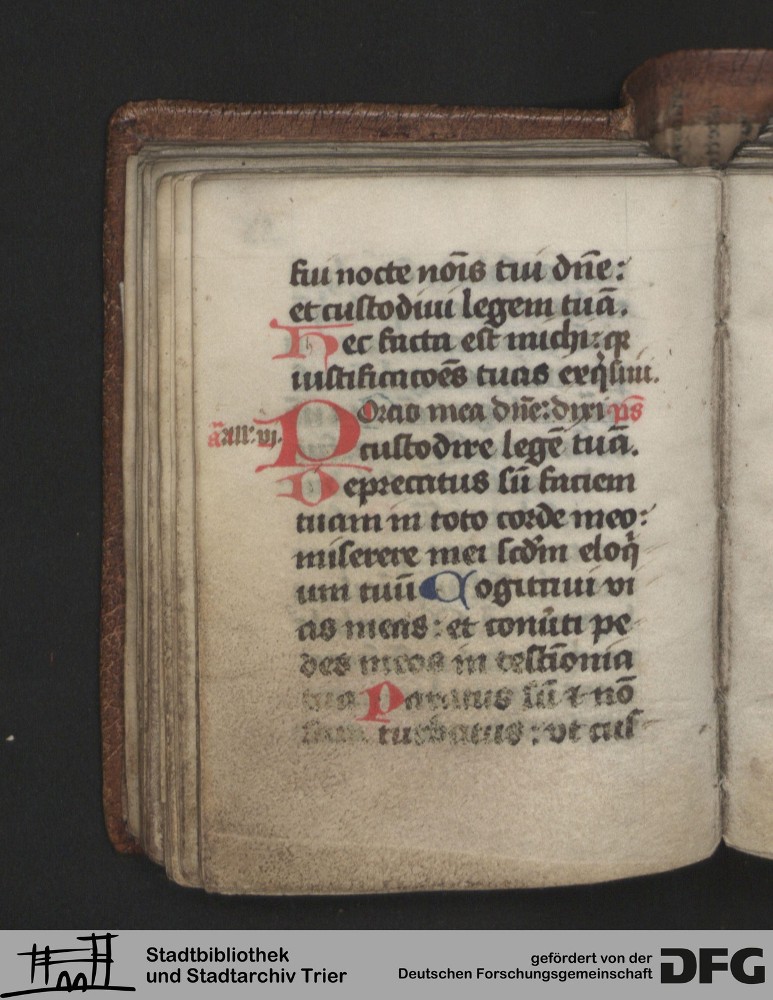 fui nocte nōis tui dn̄e:
et custodiui legem tuā.
Hec facta est michi: q̄
iustificacōēs tuas exq̇siui.
Porcio mea dn̄e: dixi ps̄
custodire legē tuā.
Deprecatus sū faciem
tuam in toto corde meo:
miserere mei scd̄m eloq̇
um tuū Cogitaui vi
as meas: et conūti pe
des meos in testīonia
tua Paratus sū ⁊ nō
sum turbatus: vt cus
Stadtbibliothek
und Stadtarchiv Trier
gefördert von der
Deutschen Forschungsgemeinschaft
DFG